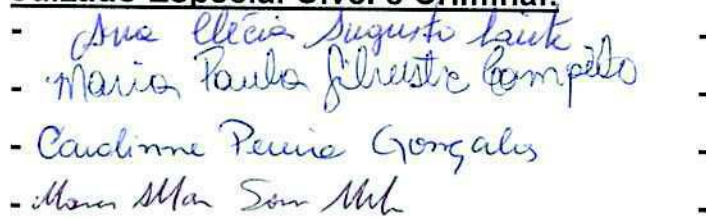 Juizado Especial Cível e Criminal:
- Ana Clécia Augusto
- Maria Paula Silvestre Campêlo
- Carolinne Pereira Gonçalves
-